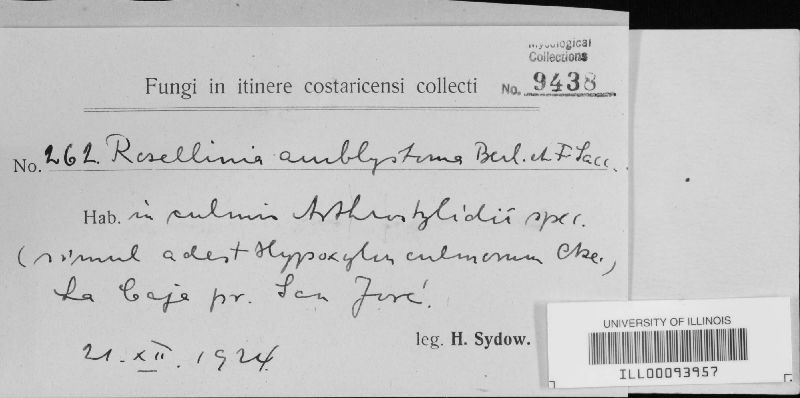 Mycological
Collections
No. 9438
Fungi in itinere costaricensi collecti
No. 262. Rosellinia amblystoma Berl. et F. Sacc.
Hab. in culmis Arthrostylidii spec.
(simul adest Hypoxylon culmorum Cke.)
La Caja pr. San José.
21. XII. 1924.
leg. H. Sydow.
UNIVERSITY OF ILLINOIS
ILL00093957